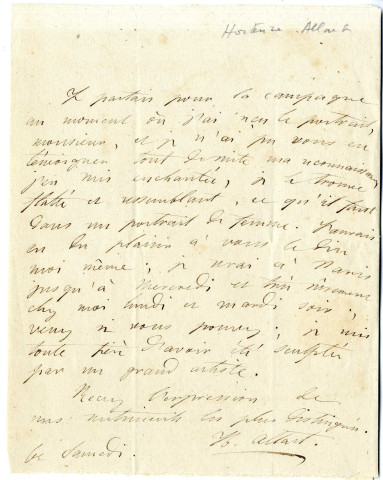 Hortense Allart
Je partais pour la campagne
au moment où j'ai reçu le portrait,
monsieur, et je n'ai pu vous en
témoigner tout de suite ma reconnaissance
j'en suis enchantée, je le trouve
flatté et ressemblant, ce qu'il faut
dans un portrait de femme. J'aurais
eu du plaisir à vous le dire
moi même; je serai à Paris
jusqu'à mercredi et très surement
chez moi lundi et mardi soir;
venez si vous pouvez; je suis
toute fière d'avoir été sculptée
par un grand artiste.
Recevez l'expression de
mes sentiments les plus distingués.
H. Allart.
ce Samedi.